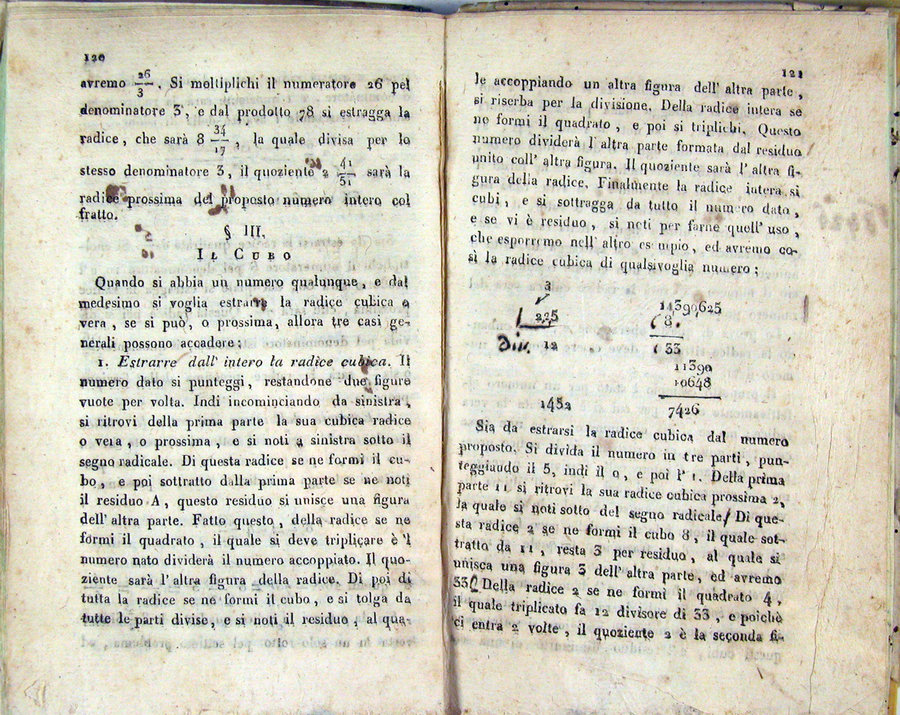 120
avremo 26/3. Si moltiplichi il numeratore 26 pel
denominatore 3, e dal prodotto 78 si estragga la
radice, che sarà 8 34/17, la quale divisa per lo
stesso denominatore 3, il quoziente 2 41/51 sarà la
radice prossima del proposto numero intero col
fratto.
§ III.
IL CUBO
Quando si abbia un numero qualunque, e dal
medesimo si voglia estrarre la radice cubica o
vera, se si può, o prossima, allora tre casi ge-
nerali possono accadere:
1. Estrarre dall' intero la radice cubica. Il
numero dato si punteggi, restandone due figure
vuote per volta. Indi incominciando da sinistra,
si ritrovi della prima parte la sua cubica radice
o vera, o prossima, e si noti a sinistra sotto il
segno radicale. Di questa radice se ne formi il cu-
bo, e poi sottratto dalla prima parte se ne noti
il residuo A, questo residuo si unisce una figura
dell' altra parte. Fatto questo, della radice se ne
formi il quadrato, il quale si deve tripliçare è 'l
numero nato dividerà il numero accoppiato. Il quo-
ziente sarà l' altra figura della radice. Di poi di
tutta la radice se ne formi il cubo, e si tolga da
tutte le parti divise, e si noti il residuo; al qua-
121
le accoppiando un altra figura dell' altra parte,
si riserba per la divisione. Della radice intera se
ne formi il quadrato, e poi si triplichi. Questo
numero dividerà l' altra parte formata dal residuo
unito coll' altra figura. Il quoziente sarà l' altra fi-
gura della radice. Finalmente la radice intera si
cubi, e si sottragga da tutto il numero dato,
e se vi è residuo, si noti per farne quell' uso,
che esporremo nell' altro esempio, ed avremo co-
sì la radice cubica di qualsivoglia numero;
3
11390625
225
8.
Div. 12
33
11390
10648
1452
7426
Sia da estrarsi la radice cubica dal numero
proposto. Si divida il numero in tre parti, pun-
teggiando il 5, indi il 0, e poi l' 1. Della prima
parte 11 si ritrovi la sua radice cubica prossima 2,
la quale si noti sotto del segno radicale. Di que-
sta radice 2 se ne formi il cubo 8, il quale sot-
tratto da 11, resta 3 per residuo, al quale si
unisca una figura 3 dell' altra parte, ed avremo
33. Della radice 2 se ne formi il quadrato 4,
il quale triplicato fa 12 divisore di 33, e poichè
ci entra 2 volte, il quoziente 2 è la seconda fi-